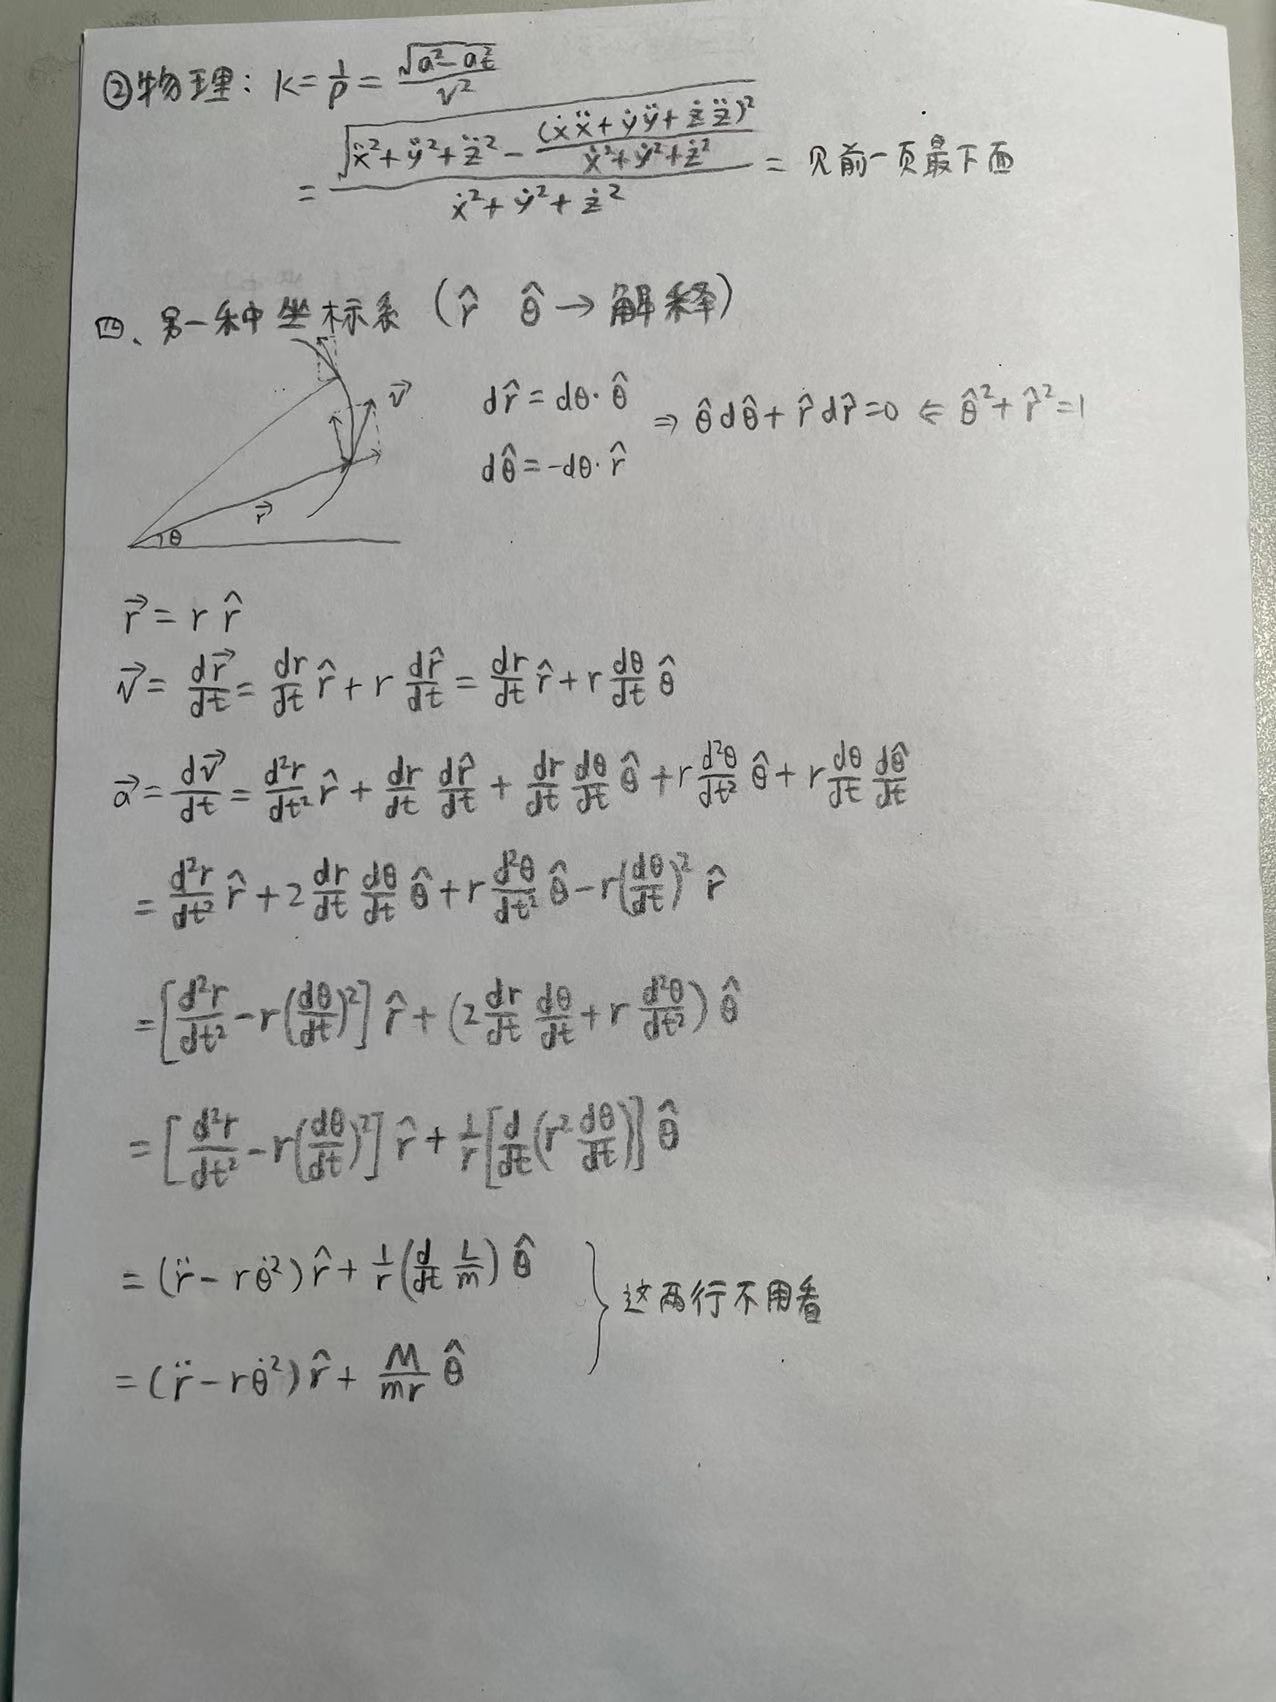 ②物理: K=1/ρ=√(a²-a_t²)/v²
=√(ẍ²+ÿ²+z̈²-(ẋẍ+ẏÿ+żz̈)²/(ẋ²+ẏ²+ż²))/(ẋ²+ẏ²+ż²) = 见前一页最下面
四、另一种坐标系 (r̂ θ̂→解释)
v⃗
r⃗
θ
dr̂=dθ·θ̂
dθ̂=-dθ·r̂
⇒ θ̂dθ̂+r̂dr̂=0 ⇐ θ̂²+r̂²=1
r⃗=r r̂
v⃗=dr⃗/dt=dr/dt r̂+r dr̂/dt=dr/dt r̂+r dθ/dt θ̂
a⃗=dv⃗/dt=d²r/dt² r̂+dr/dt dr̂/dt+dr/dt dθ/dt θ̂+r d²θ/dt² θ̂+r dθ/dt dθ̂/dt
=d²r/dt² r̂+2 dr/dt dθ/dt θ̂+r d²θ/dt² θ̂-r(dθ/dt)² r̂
=[d²r/dt²-r(dθ/dt)²] r̂+(2 dr/dt dθ/dt+r d²θ/dt²) θ̂
=[d²r/dt²-r(dθ/dt)²] r̂+1/r[d/dt(r² dθ/dt)] θ̂
=(r̈-rθ̇²) r̂+1/r(d/dt L/m) θ̂
=(r̈-rθ̇²) r̂+M/mr θ̂
}这两行不用看